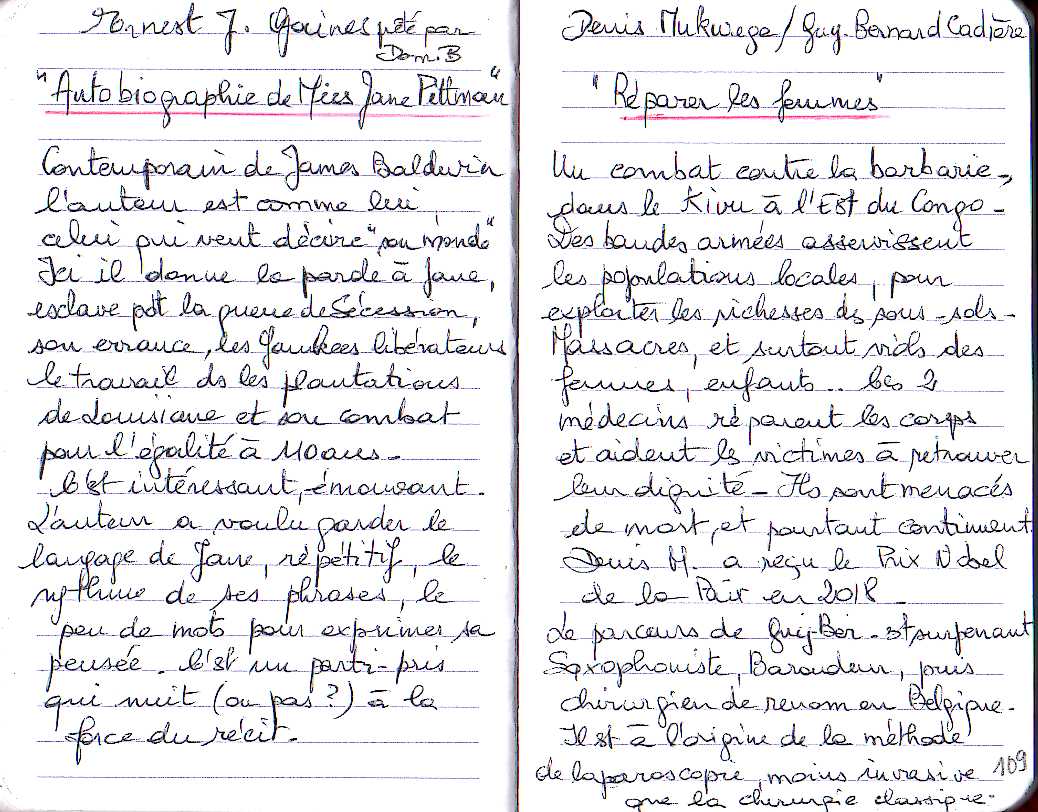 Ernest J. Gaines prêté par
Dom. B
"Autobiographie de Miss Jane Pittman"
Contemporain de James Baldwin
l'auteur est comme lui,
celui qui veut décire "son monde"
Ici il donne la parole à Jane,
esclave pdt la guerre de Sécession,
son errance, les Yankees libérateurs
le travail ds les plantations
de Louisiane et son combat
pour l'égalité à 110 ans -
C'est intéressant, émouvant.
L'auteur a voulu garder le
langage de Jane, répétitif, le
rythme de ses phrases, le
peu de mots pour exprimer sa
pensée. C'est un parti-pris
qui nuit (ou pas ?) à la
force du récit -
Denis Mukwege / Guy-Bernard Cadière
"Réparer les femmes"
Un combat contre la barbarie,
dans le Kivu à l'Est du Congo -
Des bandes armées asservissent
les populations locales, pour
exploiter les richesses des sous-sols -
Massacres, et surtout viols des
femmes, enfants .. Ces 2
médecins réparent les corps
et aident les victimes à retrouver
leur dignité - Ils sont menacés
de mort, et pourtant continuent
Denis M. a reçu le Prix Nobel
de la Paix en 2018 -
Le parcours de Guy-Ber - st surprenant
Saxophoniste, Baroudeur, puis
chirurgien de renom en Belgique -
Il est à l'origine de la méthode
de laparoscopie, moins invasive
que la chirurgie classique -
109